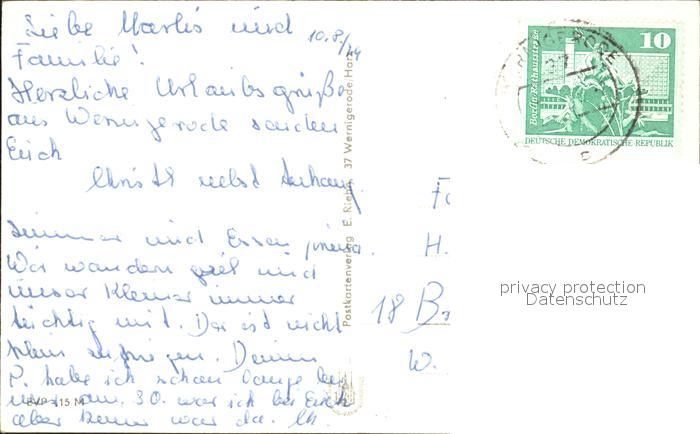 Liebe Marlis und
10.8/
Familie!
Herzliche Urlaubsgrüße
aus Wernigerode senden
Euch
Christl nebst Anhang
Zimmer und Essen prima.
Wir wandern viel und
unser Kleiner immer
tüchtig mit. Der ist nicht
klein zu kriegen. Deinen
P. habe ich schon lange bei
am 30. war ich bei Euch
aber keiner war da. Ch.
Postkartenverlag E. Riehn 37 Wernigerode Harz
EVP 15 M
H.
18 B
W.
WERNIGERODE
10
Berlin-Rathausstrasse
DEUTSCHE DEMOKRATISCHE REPUBLIK
privacy protection
Datenschutz